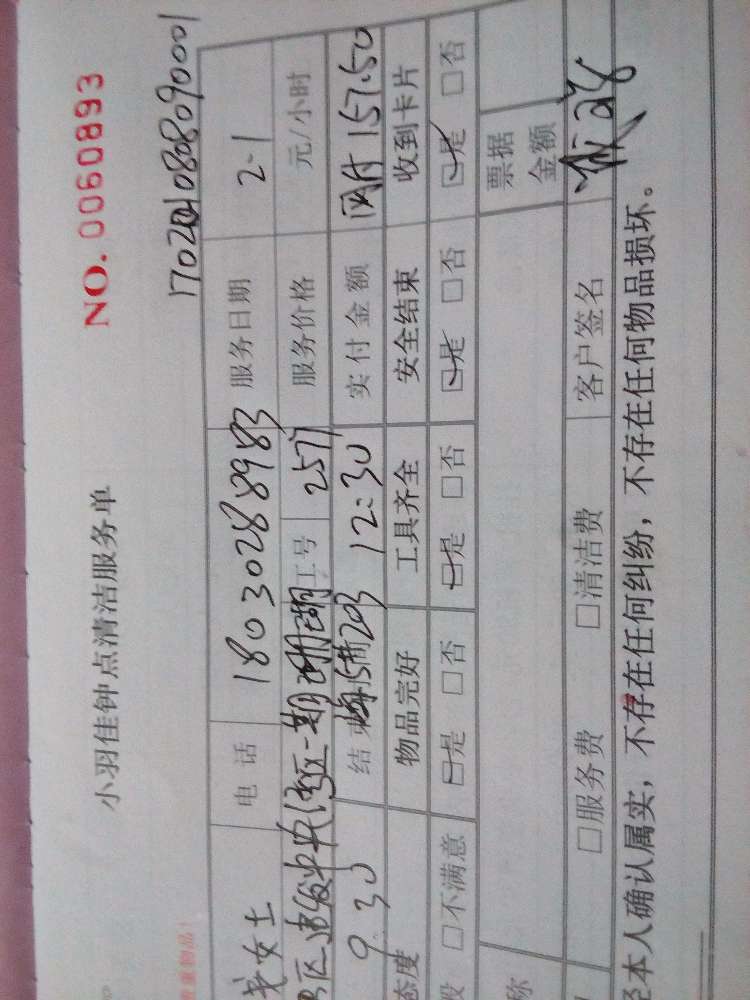 NO. 0060893
小羽佳钟点清洁服务单
女士 电话 18030288983 服务日期 2.1
区 发中央 一期珊瑚 203 工号 2571 服务价格 元/小时
9.30 结束 12:30 实付金额 网付 157.50
态度 物品完好 工具齐全 安全结束 收到卡片
□不满意 □是 □否 □是 □否 □是 □否 □是 □否
票据金额
□服务费 □清洁费 客户签名
本人确认属实，不存在任何纠纷，不存在任何物品损坏。